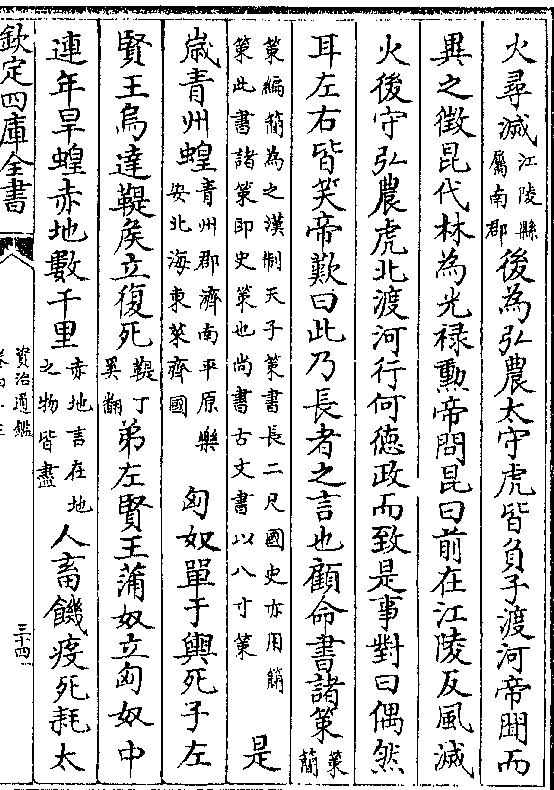 火尋滅江陵縣屬南郡後為弘農太守虎皆負子渡河帝聞而
異之徵昆代林為光禄勲帝問昆曰前在江陵反風滅
火後守弘農虎北渡河行何徳政而致是事對曰偶然
耳左右皆笑帝歎曰此乃長者之言也顧命書諸策策簡
策編簡為之漢制天子策書長二尺國史亦用簡
策此書諸策即史策也尚書古文書以八寸策
是
嵗青州蝗青州郡濟南平原樂安北海東萊齊國匈奴單于輿死子左
賢王烏達鞮侯立復死鞮丁奚翻弟左賢王蒲奴立匈奴中
連年旱蝗赤地數千里赤地言在地之物皆盡人畜饑疫死耗太
欽定四庫全書
資治通鑑
三十四